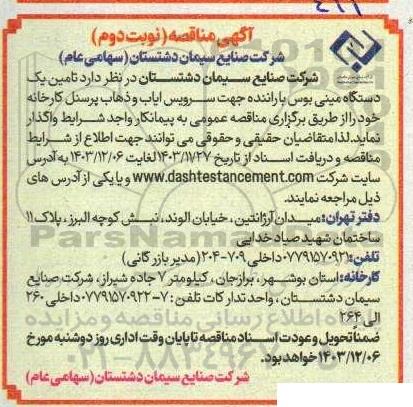 آگهی مناقصه (نوبت دوم)
شرکت صنایع سیمان دشتستان (سهامی عام)
شرکت صنایع سیمان دشتستان در نظر دارد تامین یک
دستگاه مینی بوس با راننده جهت سرویس ایاب و ذهاب پرسنل کارخانه
خود را از طریق برگزاری مناقصه عمومی به پیمانکار واجد شرایط واگذار
نماید. لذا متقاضیان حقیقی و حقوقی می توانند جهت اطلاع از شرایط
مناقصه و دریافت اسناد از تاریخ ۱۴۰۳/۱۱/۲۷ لغایت ۱۴۰۳/۱۲/۰۶ به آدرس
سایت شرکت www.dashtestancement.com و یا یکی از آدرس های
ذیل مراجعه نمایند.
دفتر تهران: میدان آرژانتین، خیابان الوند، نبش کوچه البرز، پلاک ۱۱
ساختمان شهید صیاد خدایی
تلفن: ۰۷۷۹۱۵۷۰۹۲۱ داخلی ۷۰۴-۲۰۹ (مدیر بازرگانی)
کارخانه: استان بوشهر، برازجان، کیلومتر ۷ جاده شیراز، شرکت صنایع
سیمان دشتستان، واحد تدارکات تلفن: ۷-۰۷۷۹۱۵۷۰۹۲۲ داخلی ۲۶۰
الی ۲۶۴
ضمنا تحویل و عودت اسناد مناقصه تا پایان وقت اداری روز دوشنبه مورخ
۱۴۰۳/۱۲/۰۶ خواهد بود.
شرکت صنایع سیمان دشتستان (سهامی عام)